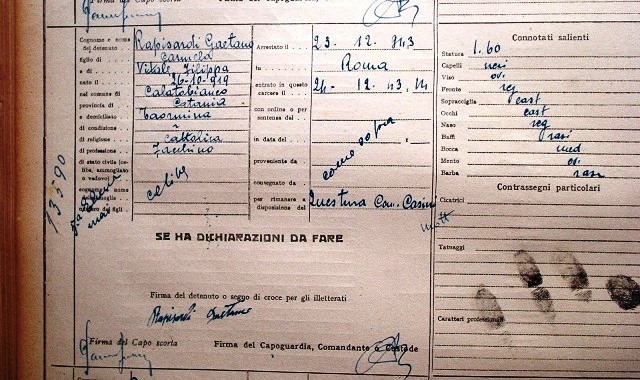 Firma del Capo scorta
Cognome e nome del detenuto Rapisardi Gaetano
figlio di Carmelo
e di Vitale Filippa
26-10-919
nel comune di Calatabianco
provincia di Catania
e domiciliato Taormina
di condizione
di religione Cattolica
di professione Facchino
di stato civile (celibe, ammogliato o vedovo) celibe
Arrestato il 23. 12. 943
in Roma
entrato in questo carcere il 24-12.43, 14
con ordine o per sentenza del
in data del
proveniente da come sopra
consegnato da
per rimanere a disposizione del Questura
13590
SE HA DICHIARAZIONI DA FARE
Firma del detenuto o segno di croce per gli illetterati
Rapisardi Gaetano
Firma del Capo scorta
Firma del Capoguardia, Comandante o Custode
Connotati salienti
Statura 1.60
Capelli neri
Viso ov.
Fronte reg
Sopracciglia cast
Occhi cast
Naso reg
Baffi rasi
Bocca med
Mento ov.
Barba rasa
Contrassegni particolari
Cicatrici
Tatuaggi
Caratteri professionali